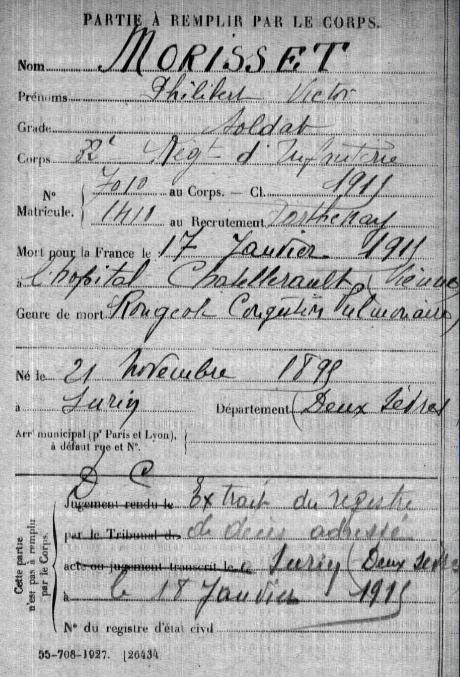 PARTIE À REMPLIR PAR LE CORPS.
Nom MORISSET
Prénoms Philibert Victor
Grade Soldat
Corps 32e Régt d'Infanterie
N° Matricule. { 7010 au Corps. — Cl. 1915
1411 au Recrutement Parthenay
Mort pour la France le 17 Janvier 1915
à l'hopital Chatellerault (Vienne)
Genre de mort Rougeole Congestion Pulmonaire
Né le 21 novembre 1895
à Surin Département (Deux Sèvres)
Arrt municipal (pr Paris et Lyon),
à défaut rue et N°.
D C
Cette partie n'est pas à remplir par le Corps.
Jugement rendu le Extrait du registre
par le Tribunal de de décès adressé
acte ou jugement transcrit le à Surin (Deux Sèvres
à le 18 Janvier 1915
N° du registre d'état civil
55-708-1927. [26434